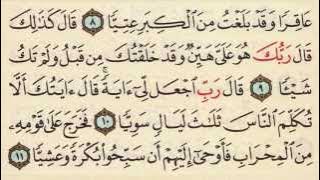 عَاقِرًا وَقَدْ بَلَغْتُ مِنَ ٱلْكِبَرِ عِتِيًّا ٨ قَالَ كَذَٰلِكَ
قَالَ رَبُّكَ هُوَ عَلَىَّ هَيِّنٌ وَقَدْ خَلَقْتُكَ مِن قَبْلُ وَلَمْ تَكُ
شَيْـًٔا ٩ قَالَ رَبِّ ٱجْعَل لِّىٓ ءَايَةً قَالَ ءَايَتُكَ أَلَّا
تُكَلِّمَ ٱلنَّاسَ ثَلَٰثَ لَيَالٍ سَوِيًّا ١٠ فَخَرَجَ عَلَىٰ قَوْمِهِۦ
مِنَ ٱلْمِحْرَابِ فَأَوْحَىٰٓ إِلَيْهِمْ أَن سَبِّحُوا۟ بُكْرَةً وَعَشِيًّا ١١